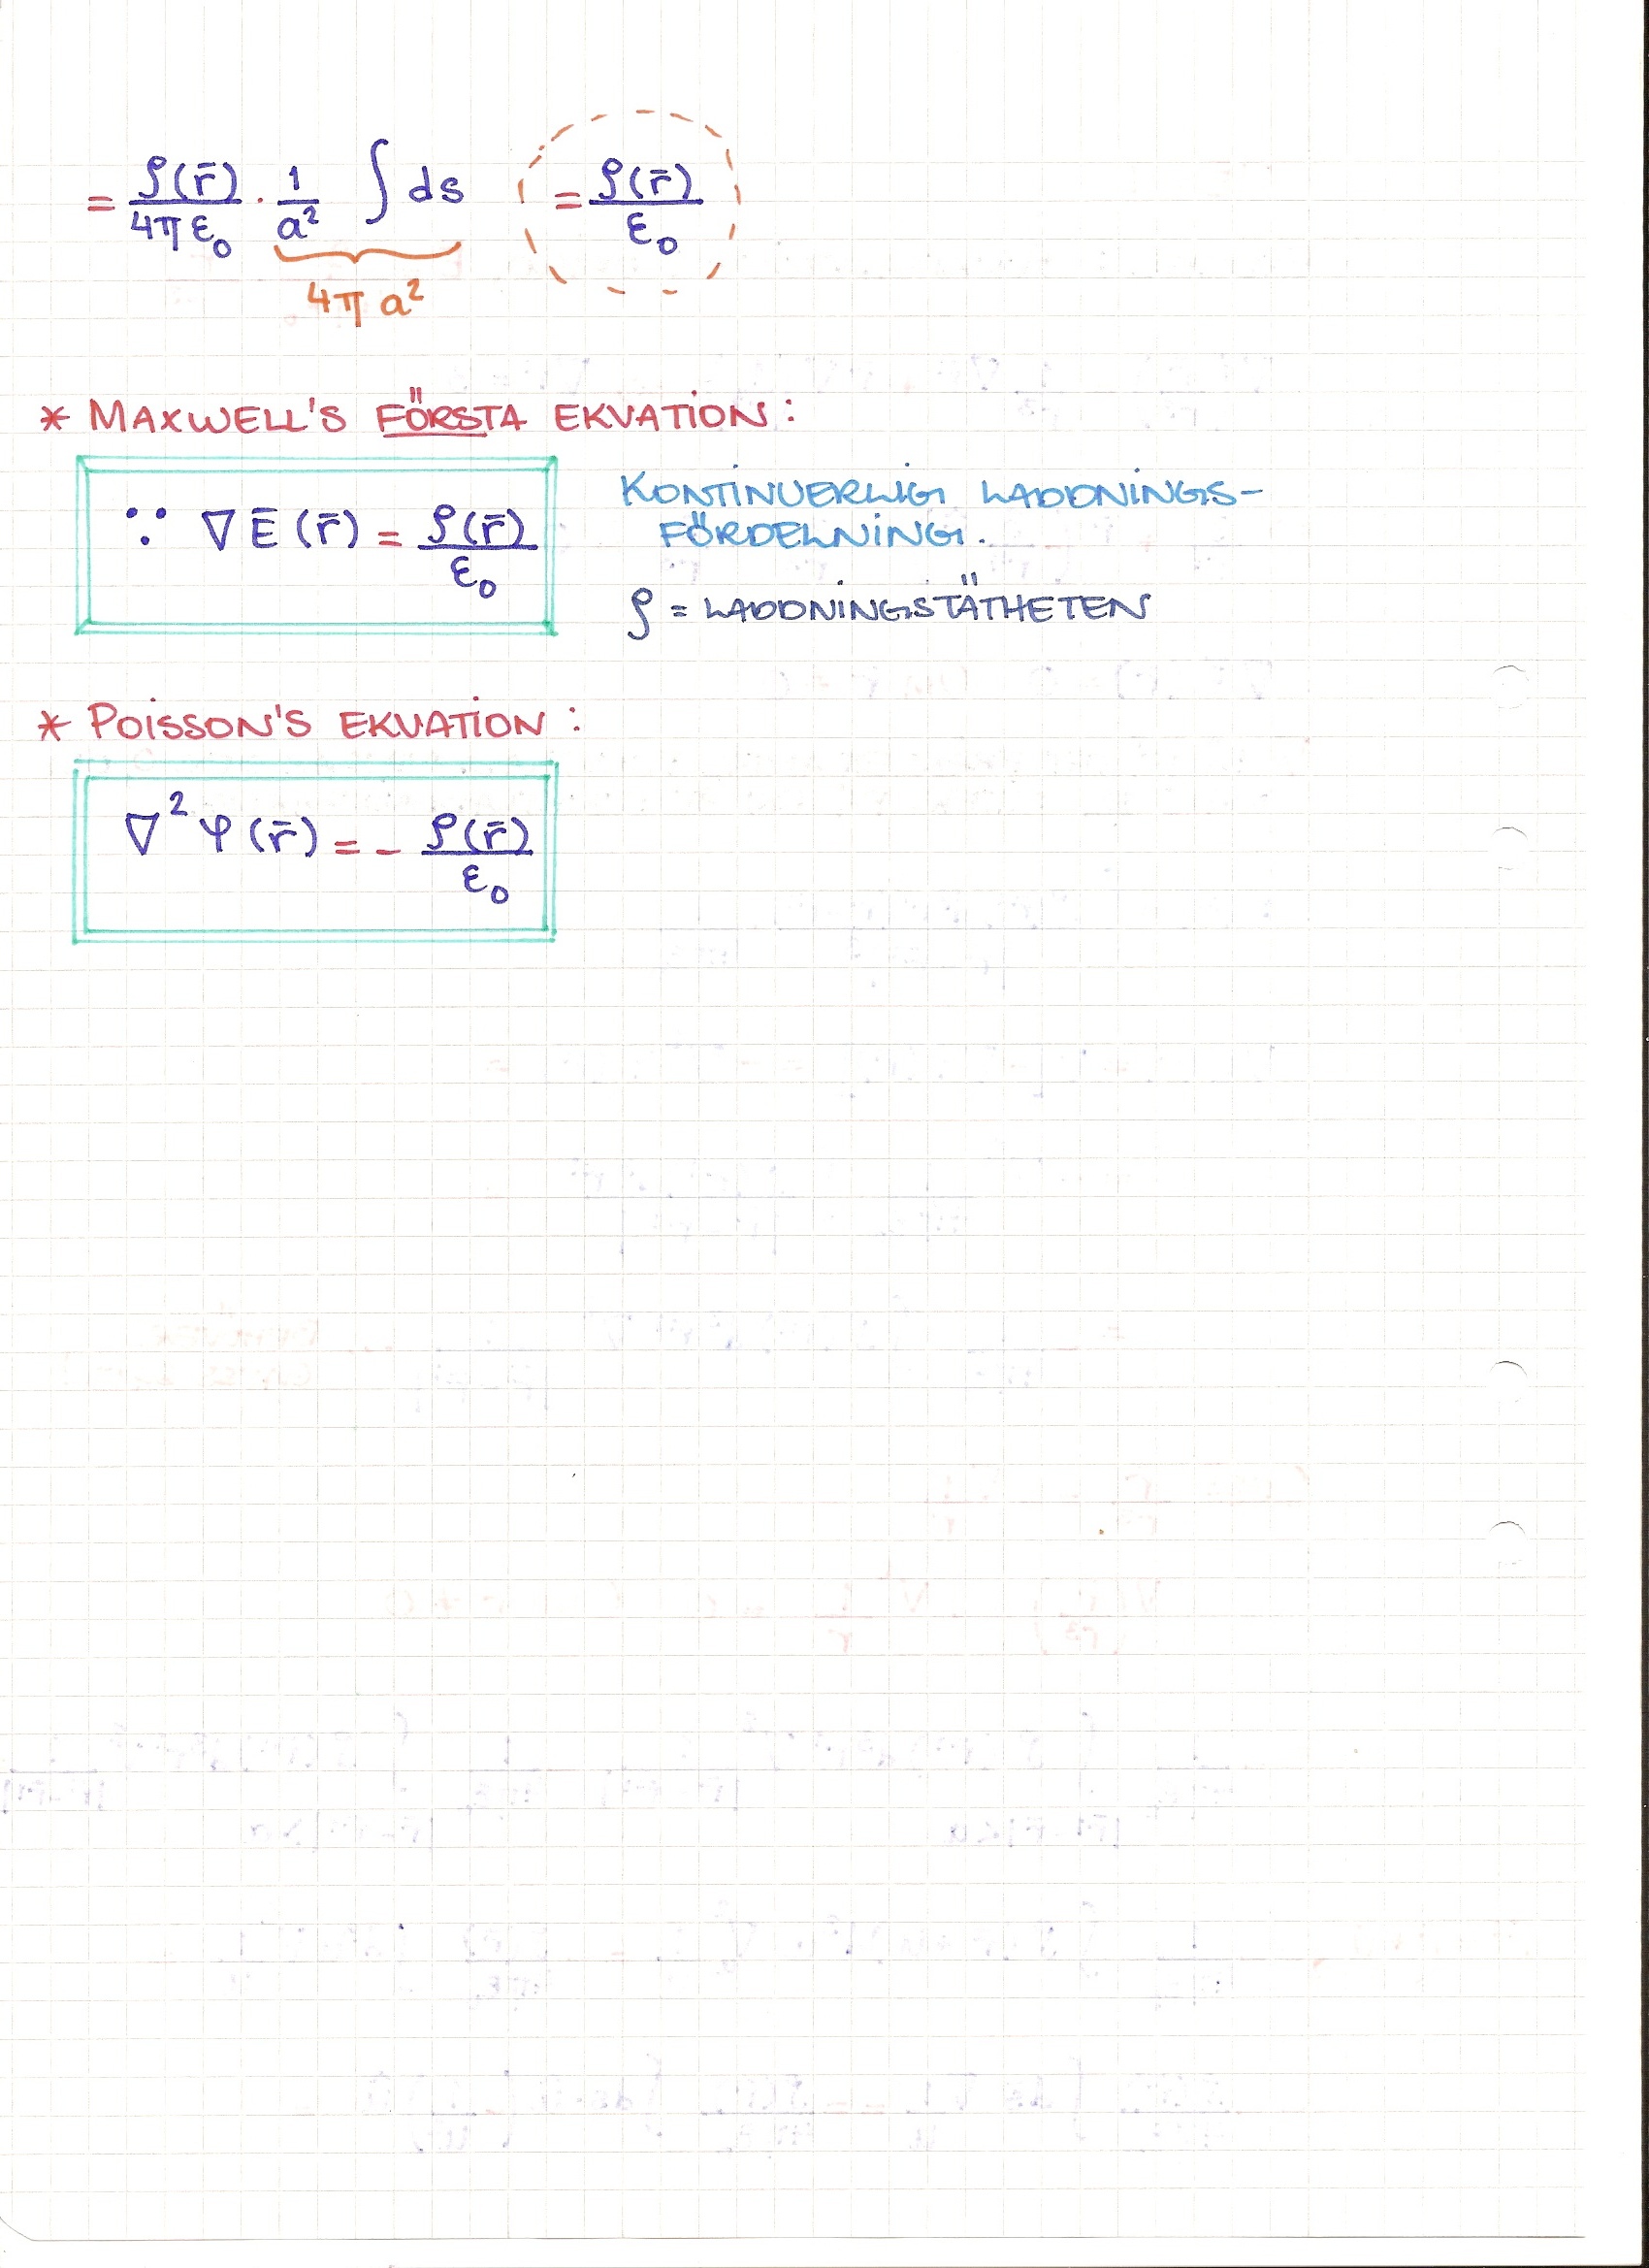 = ρ(r̄)/4πε₀ · 1/a² ∫ ds = ρ(r̄)/ε₀
4π a²
* MAXWELL'S FÖRSTA EKVATION:
∵ ∇Ē(r̄) = ρ(r̄)/ε₀
KONTINUERLIG LADDNINGS-
FÖRDELNING.
ρ = LADDNINGSTÄTHETEN
* POISSON'S EKVATION:
∇²φ(r̄) = - ρ(r̄)/ε₀